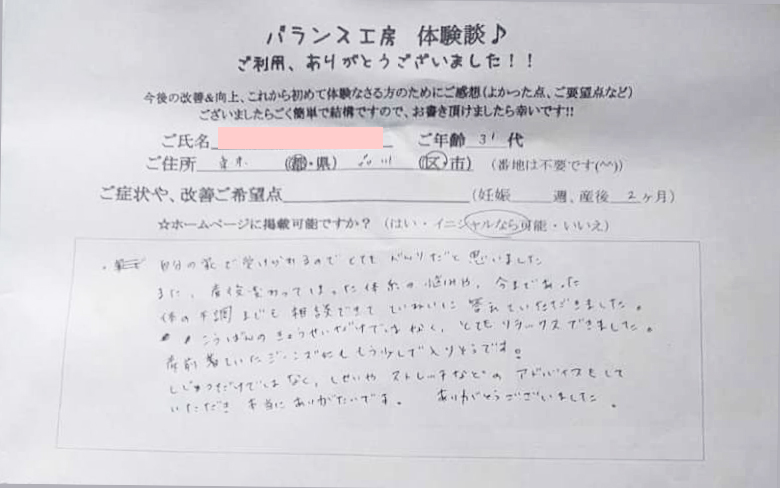 バランス工房 体験談♪
ご利用、ありがとうございました!!
今後の改善&向上、これから初めて体験なさる方のためにご感想(よかった点、ご要望点など)
ございましたらごく簡単で結構ですので、お書き頂けましたら幸いです!!
ご氏名 ご年齢 31 代
ご住所 東京 (都・県) 品川 (区・市) (番地は不要です(^^))
ご症状や、改善ご希望点 (妊娠 週、産後 2ヶ月)
☆ホームページに掲載可能ですか? (はい・イニシャルなら可能・いいえ)
自分の家で受けられるのでとてもべんりだと思いました
また、産後変わってしまった体系の悩みや、今まであった
体の不調までも相談できてていねいに答えていただきました。
こつばんのきょうせいだけではなく、とてもリラックスできました。
産前着ていたジーンズにももう少しで入りそうです!
しじゅつだけではなく、しせいやストレッチなどのアドバイスをして
いただき本当にありがたいです。 ありがとうございました。